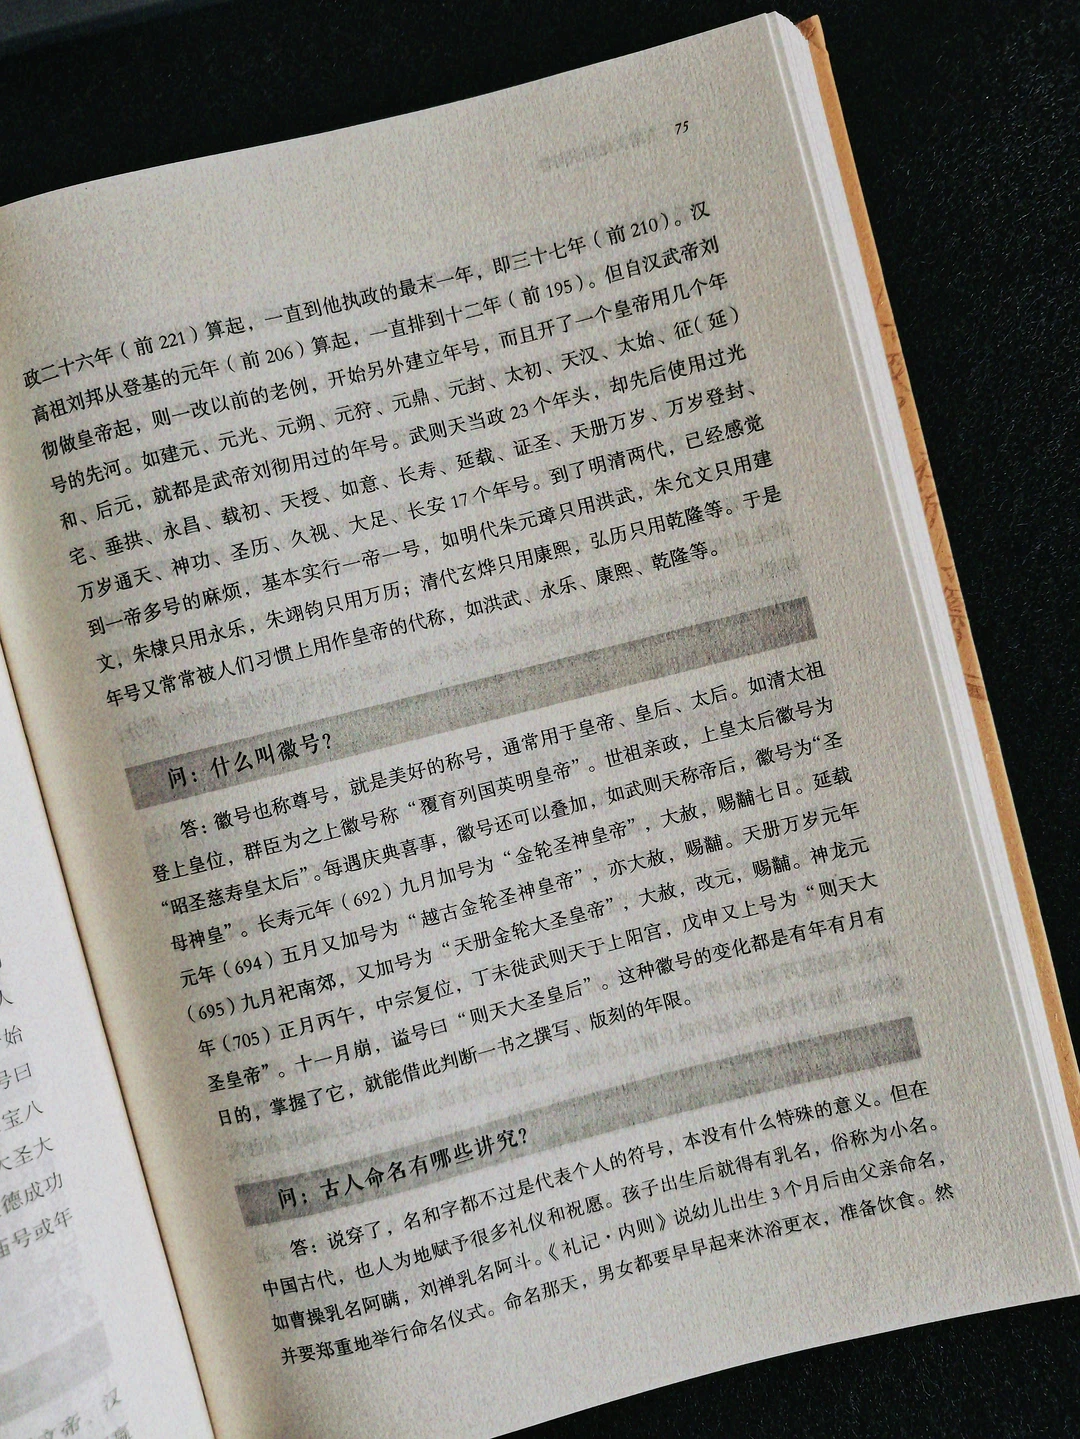 75
政二十六年（前221）算起，一直到他执政的最末一年，即三十七年（前210）。汉
高祖刘邦从登基的元年（前206）算起，一直排到十二年（前195）。但自汉武帝刘
彻做皇帝起，则一改以前的老例，开始另外建立年号，而且开了一个皇帝用几个年
号的先河。如建元、元光、元朔、元狩、元鼎、元封、太初、天汉、太始、征（延）
和、后元，就都是武帝刘彻用过的年号。武则天当政23个年头，却先后使用过光
宅、垂拱、永昌、载初、天授、如意、长寿、延载、证圣、天册万岁、万岁登封、
万岁通天、神功、圣历、久视、大足、长安17个年号。到了明清两代，已经感觉
到一帝多号的麻烦，基本实行一帝一号，如明代朱元璋只用洪武，朱允文只用建
文，朱棣只用永乐，朱翊钧只用万历；清代玄烨只用康熙，弘历只用乾隆等。于是
年号又常常被人们习惯上用作皇帝的代称，如洪武、永乐、康熙、乾隆等。
问：什么叫徽号？
答：徽号也称尊号，就是美好的称号，通常用于皇帝、皇后、太后。如清太祖
登上皇位，群臣为之上徽号称“覆育列国英明皇帝”。世祖亲政，上皇太后徽号为
“昭圣慈寿皇太后”。每遇庆典喜事，徽号还可以叠加，如武则天称帝后，徽号为“圣
母神皇”。长寿元年（692）九月加号为“金轮圣神皇帝”，大赦，赐黼七日。延载
元年（694）五月又加号为“越古金轮圣神皇帝”，亦大赦，赐黼。天册万岁元年
（695）九月祀南郊，又加号为“天册金轮大圣皇帝”，大赦，改元，赐黼。神龙元
年（705）正月丙午，中宗复位，丁未徙武则天于上阳宫，戊申又上号为“则天大
圣皇帝”。十一月崩，谥号曰“则天大圣皇后”。这种徽号的变化都是有年有月有
日的，掌握了它，就能借此判断一书之撰写、版刻的年限。
问：古人命名有哪些讲究？
答：说穿了，名和字都不过是代表个人的符号，本没有什么特殊的意义。但在
中国古代，也人为地赋予很多礼仪和祝愿。孩子出生后就得有乳名，俗称为小名。
如曹操乳名阿瞒，刘禅乳名阿斗。《礼记·内则》说幼儿出生3个月后由父亲命名，
并要郑重地举行命名仪式。命名那天，男女都要早早起来沐浴更衣，准备饮食。然
人
始
号曰
宝八
大圣大
德成功
庙号或年
帝、汉